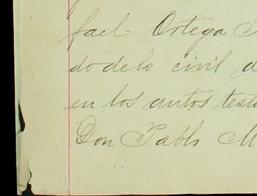 fael Ortega
do de lo civil d
en los autos testa
Don Pablo M